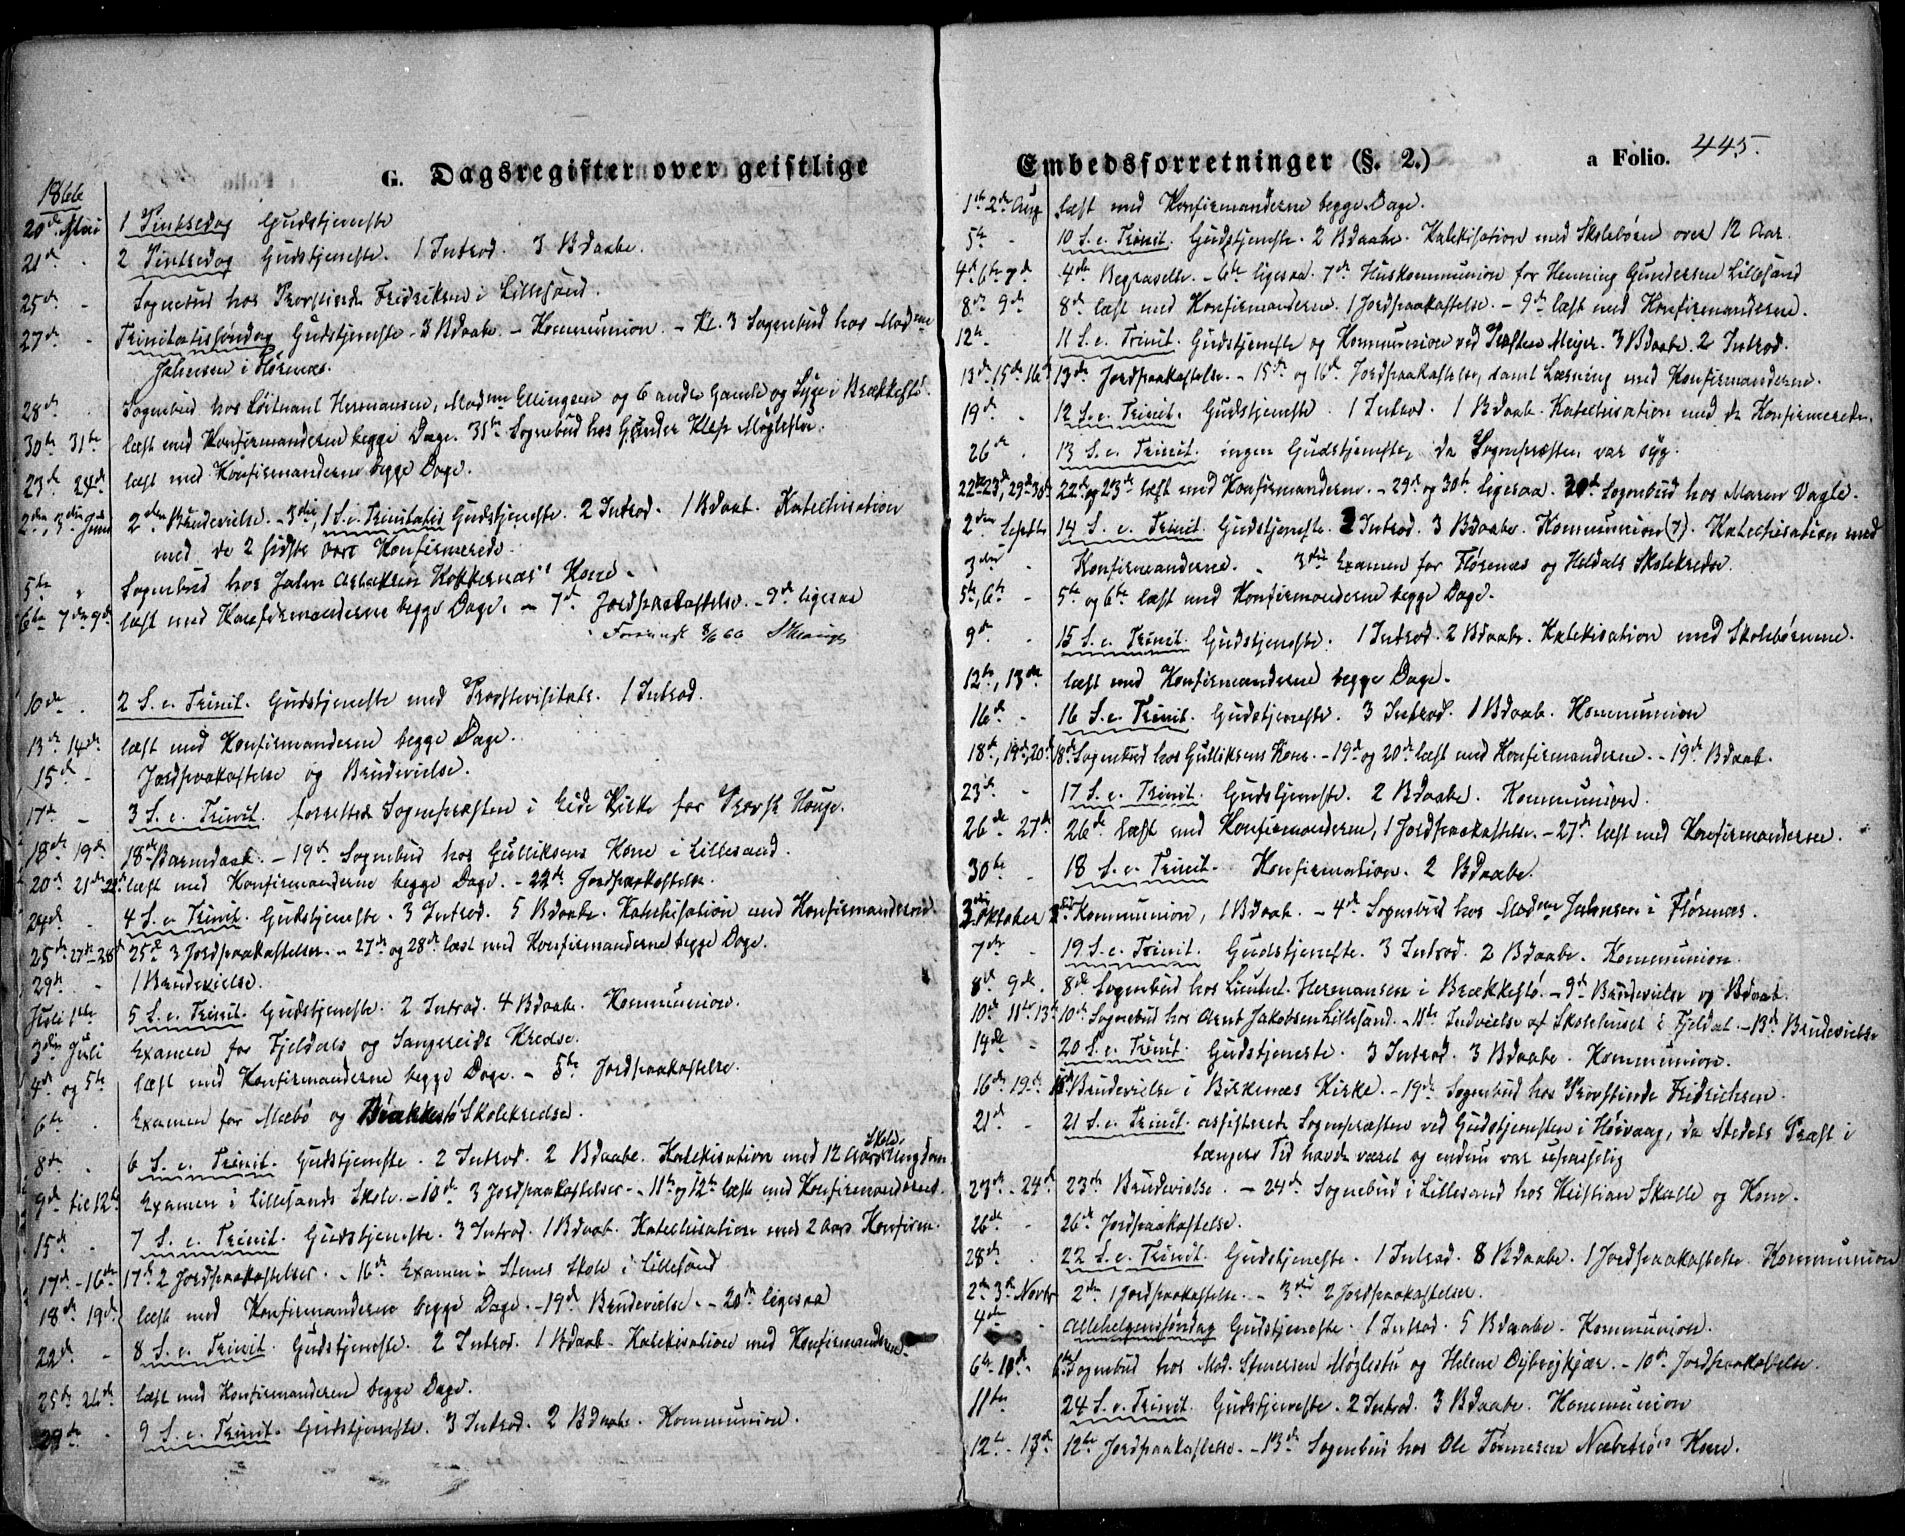 G. Dagsregister over geistlige
1866
20de Mai 1 Pintsedag Gudstjeneste
21de - 2 Pintsedag Gudstjeneste. 1 Introd. 3 BDaabe.
25de - Sognebud hos Provstinde Fridriksen i Lillesand.
27de - Trinitatissøndag Gudstjeneste - 3 BDaabe - Kommunion. - Kl. 3 Sognebud hos Madme
Jahnsen i Flørenæs.
28de - Sognebud hos Løitnant Hermansen, Madme Ellingsen og 6 andre Gamle og Syge i Brækkestø.
30te 31te læst med Konfirmanderne begge Dage. 31te Sognebud hos Gunder Møglestu.
23de 24de læst med Konfirmanderne begge Dage.
2den, 3die Juni 2den Brudevielse. - 3die, 1 S. e. Trinitatis Gudstjeneste. 2 Introd. 1 BDaab. Katechisation
med de 2 sidste Aars Konfirmerede.
5te " Sognebud hos Jahn Aslaksen Kokkenæs' Kone.
6te 7de 9de læst med Konfirmanderne begge Dage. - 7de Jordpaakastelse. - 9de ligesaa
10de - 2 S. e. Trinit. Gudstjeneste med Provstevisitats. 1 Introd.
13de 14de læst med Konfirmanderne begge Dage.
15de - Jordpaakastelse og Brudevielse.
17de - 3 S. e. Trinit. forrettede Sognepræsten i Eide Kirke for Provst Houge.
18de 19de 18de Barnedaab. - 19de Sognebud hos Gulliksens Kone i Lillesand.
20de 21de 22de læst med Konfirmanderne begge Dage. - 22de Jordpaakastelse.
24de - 4 S. e. Trinit. Gudstjeneste. 3 Introd. 5 BDaabe. Katechisation med Konfirmanderne.
25de 27de - 28de 25de 3 Jordpaakastelser. - 27de og 28de læst med Konfirmanderne begge Dage.
29de - 1 Brudevielse.
Juli 1ste 5 S. e. Trinit. Gudstjeneste. 2 Introd. 4 BDaabe. Kommunion.
3die Juli Examen for Fjeldals og Sangereids Kredse.
4de og 5te læst med Konfirmanderne begge Dage. - 5te Jordpaakastelse.
6te - Examen for Mæbø og Brækkestø Skolekredse.
8de - 6 S. e. Trinit. Gudstjeneste. 2 Introd. 2 BDaabe. Katekisation med 12 Aars Skole-Ungdom
9de til 12te Examen i Lillesands Skole. - 10de 3 Jordpaakastelser. - 11te og 12te læst med Konfirmanderne.
15de - 7 S. e. Trinit. Gudstjeneste. 3 Introd. 1 BDaab. Katechisation med 2 Aars Konfirm.
17de - 16de 17de 2 Jordpaakastelser. - 16de Examen i Stenes Skole i Lillesand
18de 19de læst med Konfirmanderne begge Dage. - 19de Brudevielse. - 20de ligesaa
22de - 8 S. e. Trinit. Gudstjeneste. 2 Introd. 1 BDaab. Katekisation med Konfirmanderne.
25de 26de læst med Konfirmanderne begge Dage.
29de - 9 S. e. Trinit. Gudstjeneste. 3 Introd. 2 BDaabe. Kommunion.
Embedsforretninger (§. 2.) a Folio. 445.
1ste 2de Aug læst med Konfirmanderne begge Dage.
5te - 10 S. e. Trinit. Gudstjeneste. 2 BDaabe. Katekisation med Skolebørn over 12 Aar.
4de 6te 7de 4de Begravelse. - 6te ligesaa. 7de Huskommunion for Henning Gundersen Lillesand
8de 9de 8de læst med Konfirmanderne. 1 Jordpaakastelse. - 9de læst med Konfirmanderne.
12te - 11 S. e. Trinit. Gudstjeneste og Kommunion ved Præsten Meyer. 3 BDaabe. 2 Introd.
13de, 15de 16de 13de Jordpaakastelse. - 15de og 16de Jordpaakastelse, samt Læsning med Konfirmanderne.
19de - 12 S. e. Trinit. Gudstjeneste. 1 Introd. 1 BDaab. Katechisation med de Konfirmerede.
26de - 13 S. e. Trinit. ingen Gudstjeneste, da Sognepræsten var syg.
22de 23de, 29de 30te 22de og 23de læst med Konfirmanderne. - 29de og 30te ligesaa. 30te Sognebud hos Maren Vagle.
2den Septbr 14 S. e. Trinit. Gudstjeneste. 2 Introd. 3 BDaabe. Kommunion (7). Katechisation med
3die - Konfirmanderne. - 3die Examen for Flørenæs og Heldals Skolekredse.
5te, 6te - 5te og 6te læst med Konfirmanderne begge Dage.
9de - 15 S. e. Trinit. Gudstjeneste. 1 Introd. 2 BDaabe. Katekisation med Skolebørnene.
12te, 13de læst med Konfirmanderne begge Dage.
16de - 16 S. e. Trinit. Gudstjeneste. 3 Introd. 1 BDaab. Kommunion
18de, 19de, 20de 18de Sognebud hos Gulliksens Kone. - 19de og 20de læst med Konfirmanderne. - 19de BDaab.
23de - 17 S. e. Trinit. Gudstjeneste. 2 BDaabe. Kommunion.
26de 27de 26de læst med Konfirmanderne, 1 Jordpaakastelse. - 27de læst med Konfirmanderne.
30te - 18 S. e. Trinit. Konfirmation. 2 BDaabe.
3die Oktober 3die Kommunion, 1 BDaab. - 4de Sognebud hos Madme Jahnsen i Flørenæs.
7de - 19 S. e. Trinit. Gudstjeneste. 3 Introd. 2 BDaabe. Kommunion.
8de 9de. 8de Sognebud hos Lieutnt. Hermansen i Brækkestø. - 9de Brudevielse og BDaab.
10de 11te 13de 10de Sognebud hos Arnt Jakobsen Lillesand. - 11te Indvielse af Skolehuset i Fjeldal. - 13de Brudevielse
14de - 20 S. e. Trinit. Gudstjeneste. 3 Introd. 3 BDaabe. Kommunion.
16de 19de 16de Brudevielse i Birkenæs Kirke. - 19de Sognebud hos Provstinde Fridrichsen.
21de - 21 S. e. Trinit. assisterede Sognepræsten ved Gudstjenesten i Høivaag, da Stedets Præst i
længere Tid havde været og endnu var upasselig
23de - 24de 23de Brudevielse. - 24de Sognebud i Lillesand hos Kristian Skalle og Kone.
26de - 26de Jordpaakastelse.
28de - 22 S. e. Trinit. Gudstjeneste. 1 Introd. 8 BDaabe. 1 Jordpaakastelse. Kommunion
2den 3die Novbr 2den 1 Jordpaakastelse. - 3die 2 Jordpaakastelser.
4de - Allehelgenssøndag Gudstjeneste. 1 Introd. 5 BDaabe. Kommunion.
6te 10de - 6te Sognebud hos Mad. Stenersen Møglestu og Helene Dybvigkjær. - 10de Jordpaakastelse.
11te 24 S. e. Trinit. Gudstjeneste. 2 Introd. 3 BDaabe. Kommunion
12te - 13de 12te Jordpaakastelse. - 13de Sognebud hos Ole Tønnesen Kone.